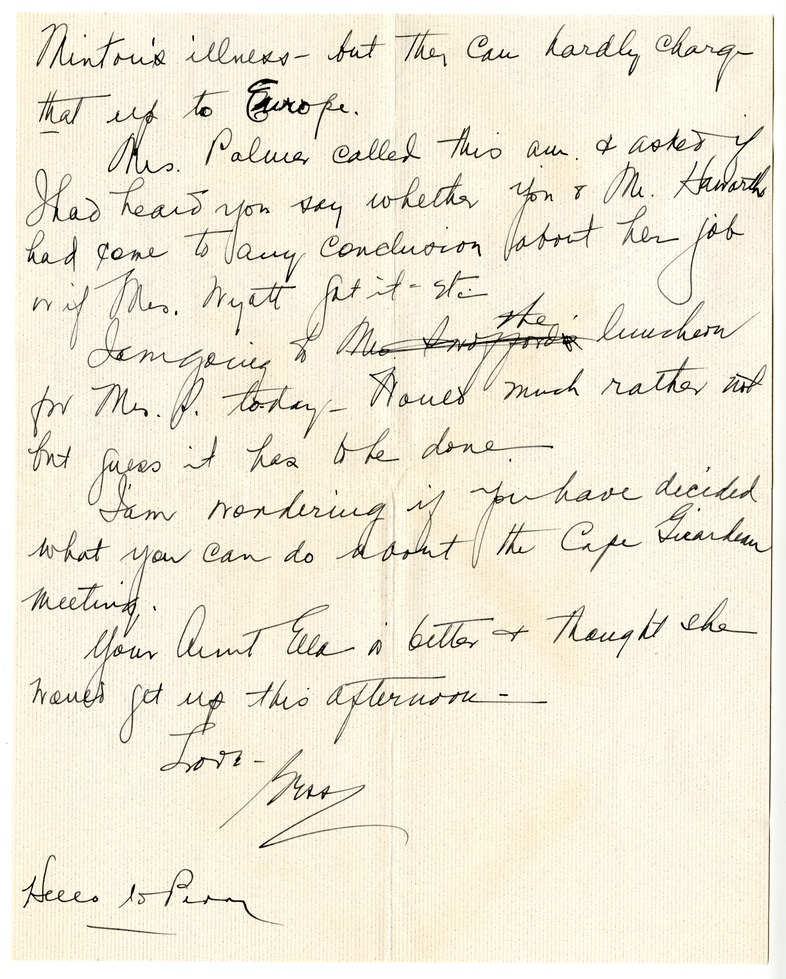 Minton's illness - but they can hardly charge
that up to Europe.
Mrs. Palmer called this a.m. & asked if
I had heard you say whether you & Mr. Haworth
had come to any conclusion about her job
or if Mrs. Wyatt got it - etc.
I am going to the luncheon
for Mrs. P. to-day - Would much rather not
but guess it has to be done
I am wondering if you have decided
what you can do about the Cape Girardeau
meeting.
Your Aunt Ella is better & thought she
would get up this afternoon -
Love -
Bess
Hello to Perry